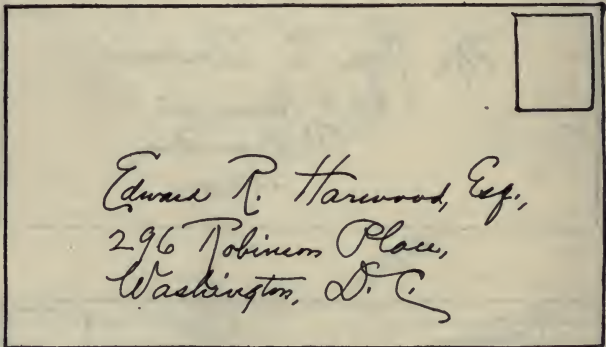 Edward R. Harwood, Esq.,
296 Robinson Place,
Washington, D. C.